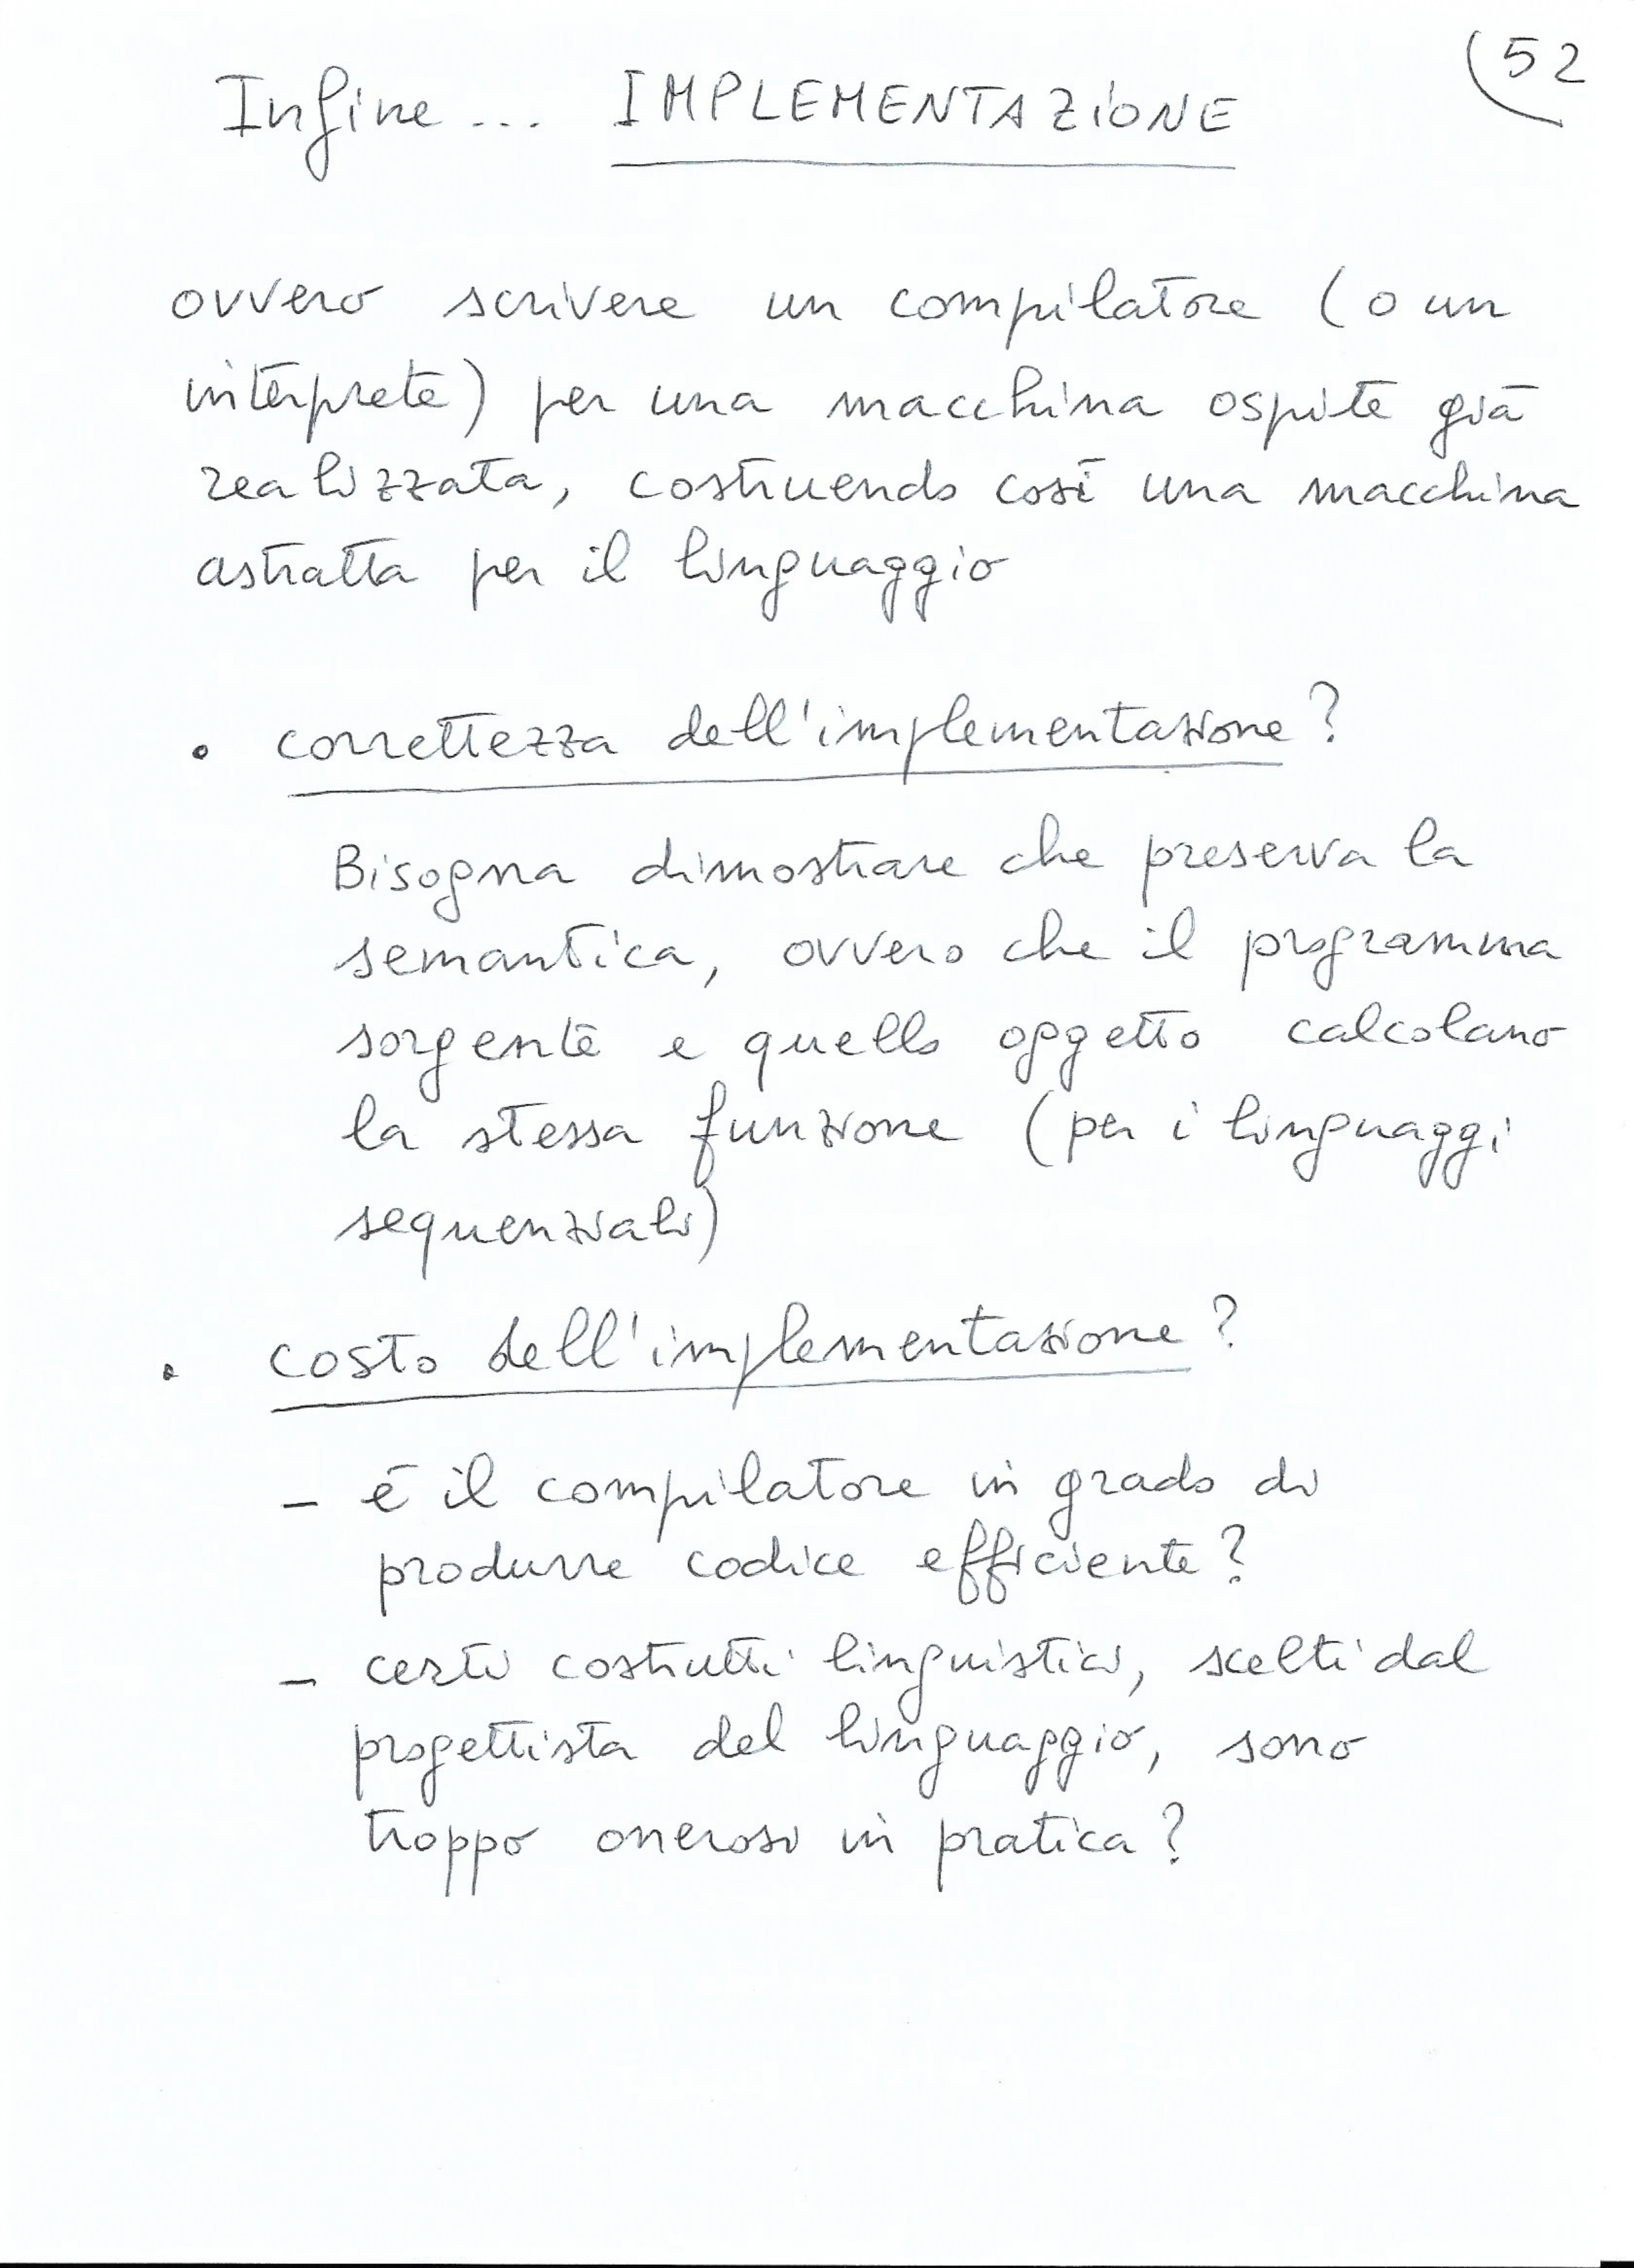 52
Infine... IMPLEMENTAZIONE
ovvero scrivere un compilatore (o un
interprete) per una macchina ospite già
realizzata, costruendo così una macchina
astratta per il linguaggio
• correttezza dell'implementazione?
Bisogna dimostrare che preserva la
semantica, ovvero che il programma
sorgente e quello oggetto calcolano
la stessa funzione (per i linguaggi
sequenziali)
• costo dell'implementazione?
- é il compilatore in grado di
produrre codice efficiente?
- certi costrutti linguistici, scelti dal
progettista del linguaggio, sono
troppo onerosi in pratica?